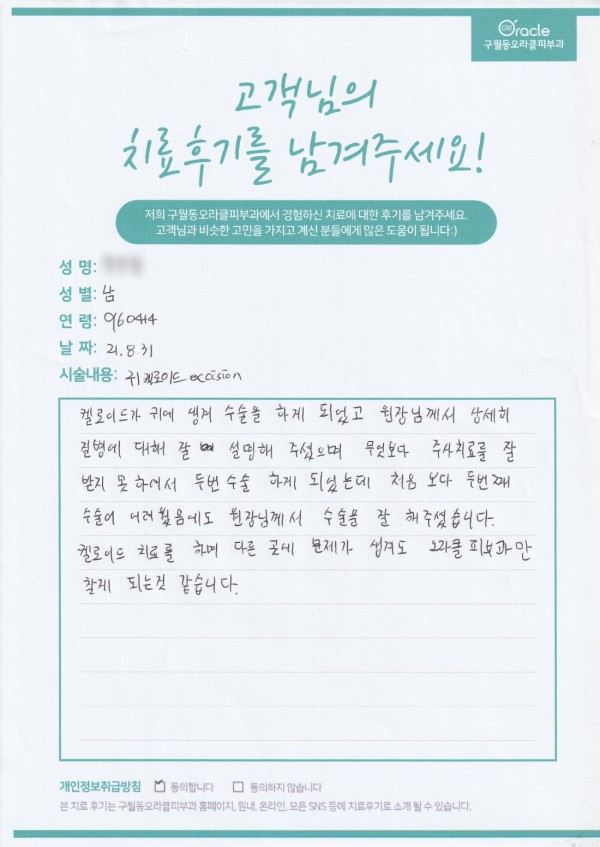 Oracle
구월동오라클피부과
고객님의
치료후기를 남겨주세요!
저희 구월동오라클피부과에서 경험하신 치료에 대한 후기를 남겨주세요.
고객님과 비슷한 고민을 가지고 계신 분들에게 많은 도움이 됩니다:)
성 명:
성 별: 남
연 령: 960414
날 짜: 21.8.31
시술내용: 귀켈로이드 excision
켈로이드가 귀에 생겨 수술을 하게 되었고 원장님께서 상세히
질병에 대해 잘 설명해 주셨으며 무엇보다 주사치료를 잘
받지 못하여서 두번 수술 하게 되었는데 처음 보다 두번째
수술이 어려웠음에도 원장님께서 수술을 잘 해주셨습니다.
켈로이드 치료를 하며 다른 곳에 문제가 생겨도 오라클 피부과만
찾게 되는것 같습니다.
개인정보취급방침 동의합니다 동의하지 않습니다
본 치료 후기는 구월동오라클피부과 홈페이지, 원내, 온라인, 모든 SNS 등에 치료후기로 소개 될 수 있습니다.